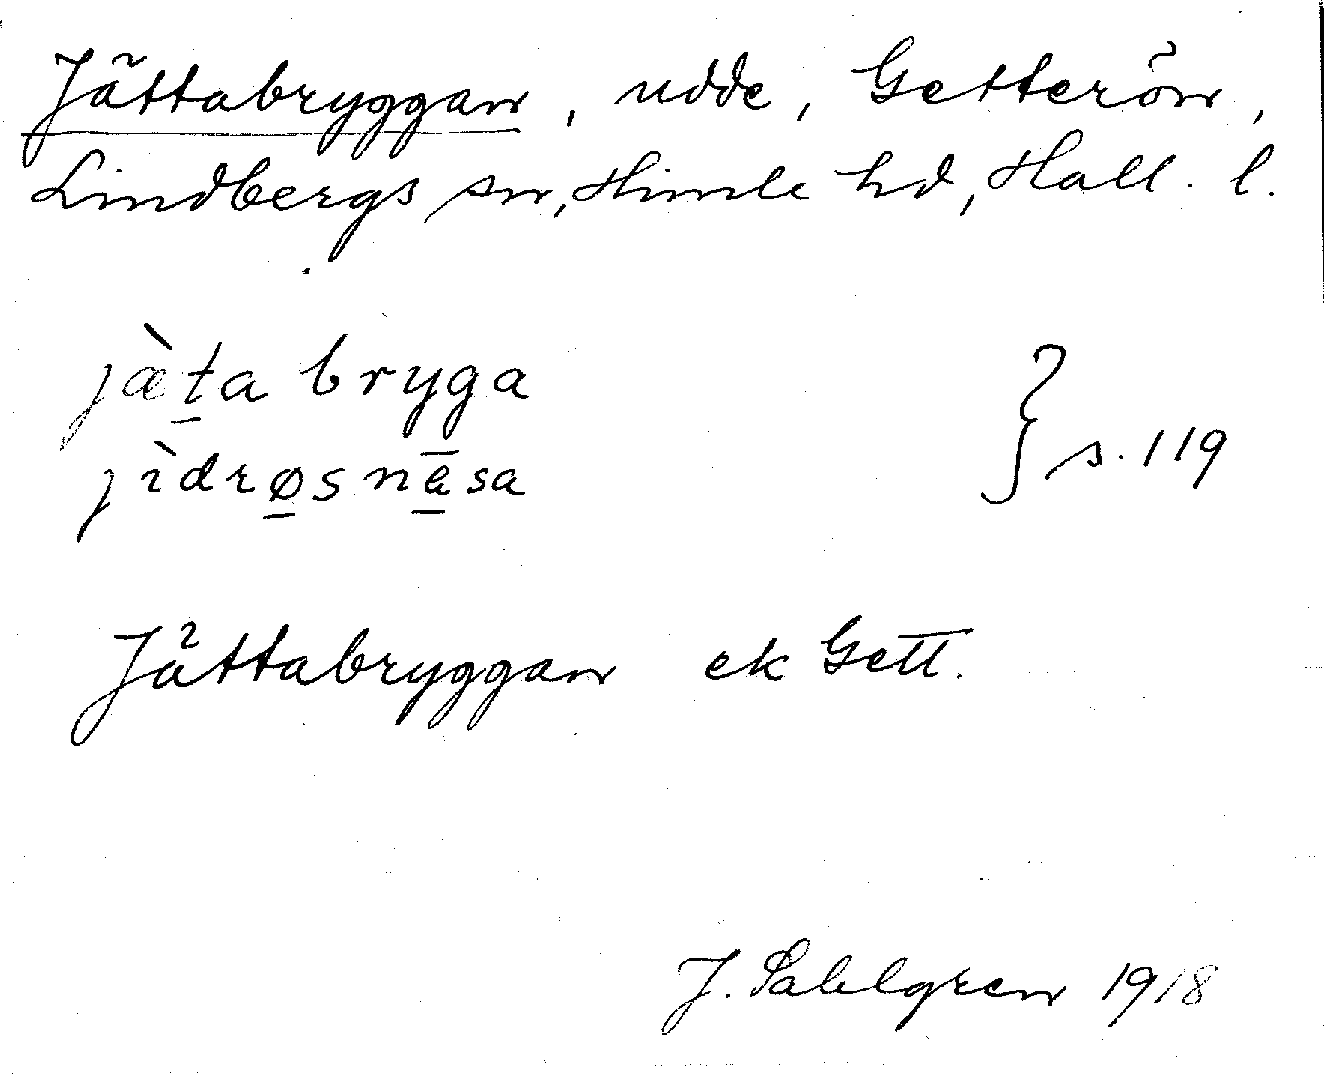 Jättabryggan, udde, Getterön,
Lindbergs sn, Himle hd, Hall. l.
jæ̀ṯa bryga
jìdrø̱snē̱sa } s. 119
Jättabryggan ek Gett.
J. Sahlgren 1918